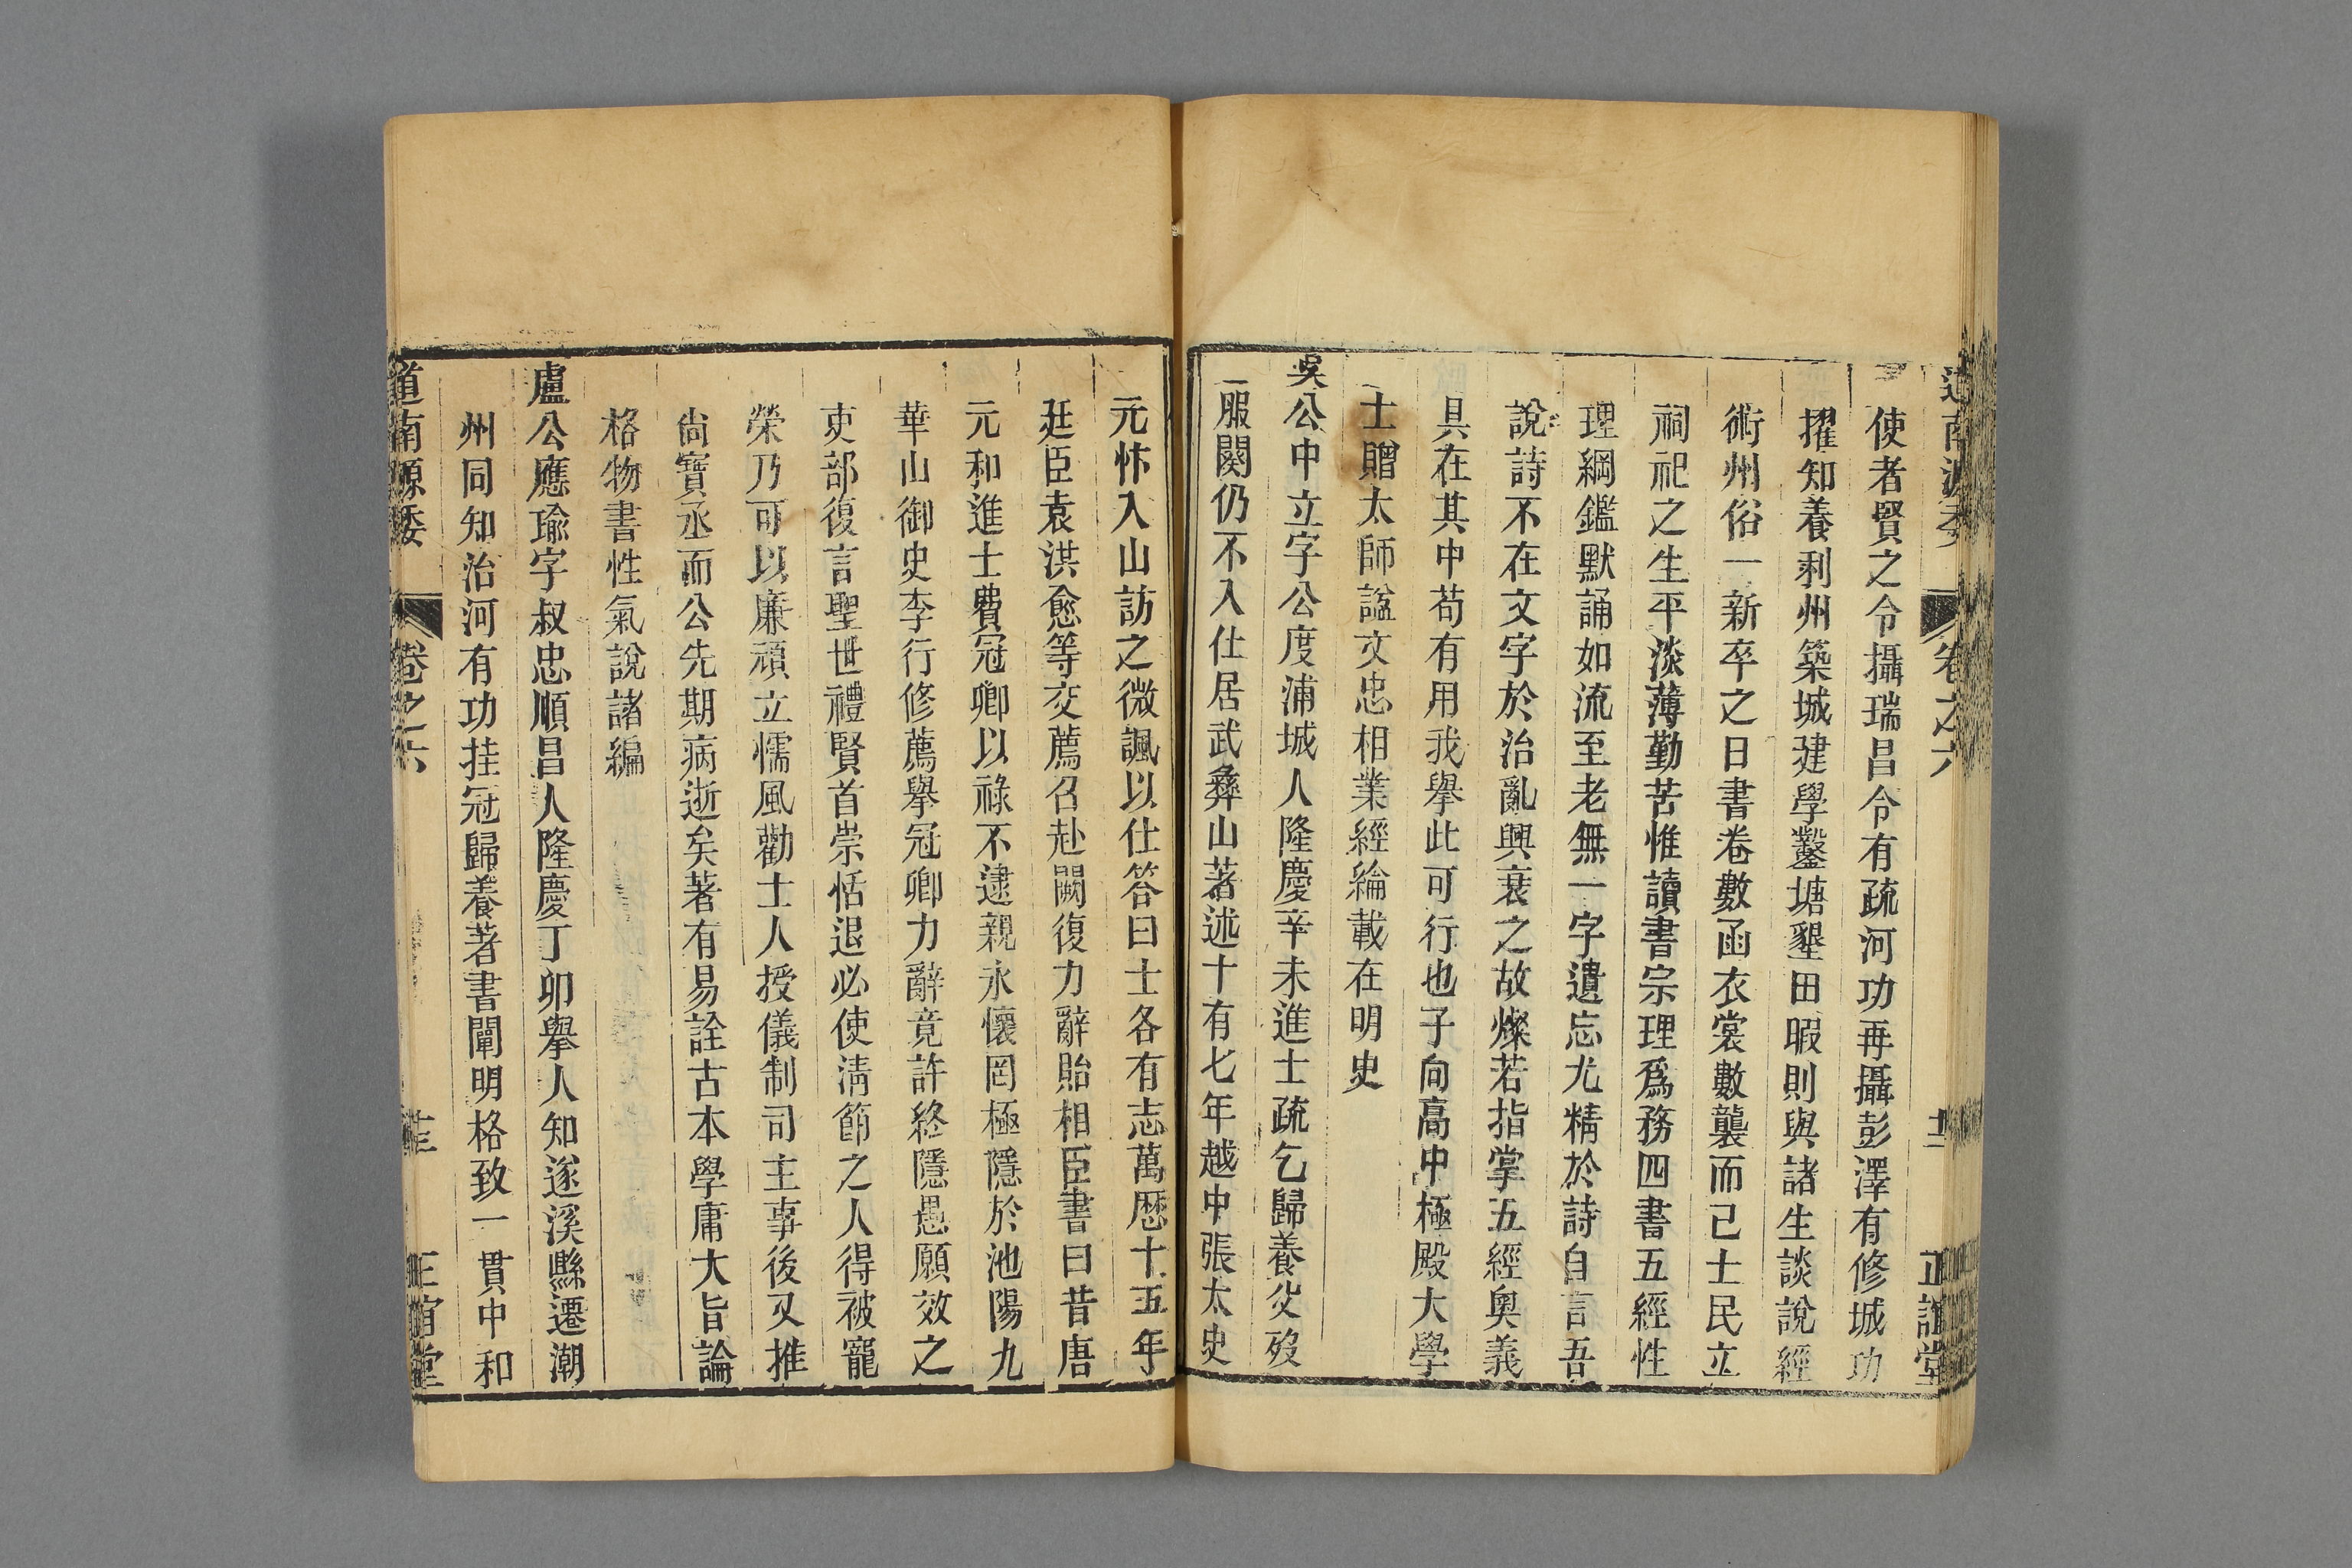 道南源委 卷之六 十二 正誼堂
使者賢之令攝瑞昌令有疏河功再攝彭澤有修城功
擢知養利州築城建學鑿塘墾田暇則與諸生談說經
術州俗一新卒之日書卷數函衣裳數襲而已士民立
祠祀之生平淡薄勤苦惟讀書宗理爲務四書五經性
理綱鑑默誦如流至老無一字遺忘尤精於詩自言吾
說詩不在文字於治亂興衰之故燦若指掌五經奧義
具在其中苟有用我舉此可行也子向高中極殿大學
士贈太師諡文忠相業經綸載在明史
吳公中立字公度浦城人隆慶辛未進士疏乞歸養父歿
服闋仍不入仕居武彝山著述十有七年越中張太史
元忭入山訪之微諷以仕答曰士各有志萬歷十五年
廷臣袁洪愈等交薦召赴闕復力辭貽相臣書曰昔唐
元和進士費冠卿以祿不逮親永懷罔極隱於池陽九
華山御史李行修薦舉冠卿力辭竟許終隱愚願效之
吏部復言聖世禮賢首崇恬退必使淸節之人得被寵
榮乃可以廉頑立懦風勸士人授儀制司主事後又推
尚寶丞而公先期病逝矣著有易詮古本學庸大旨論
格物書性氣說諸編
盧公應瑜字叔忠順昌人隆慶丁卯舉人知遂溪縣遷潮
州同知治河有功挂冠歸養著書闡明格致一貫中和
道南源委 卷之六 十三 正誼堂